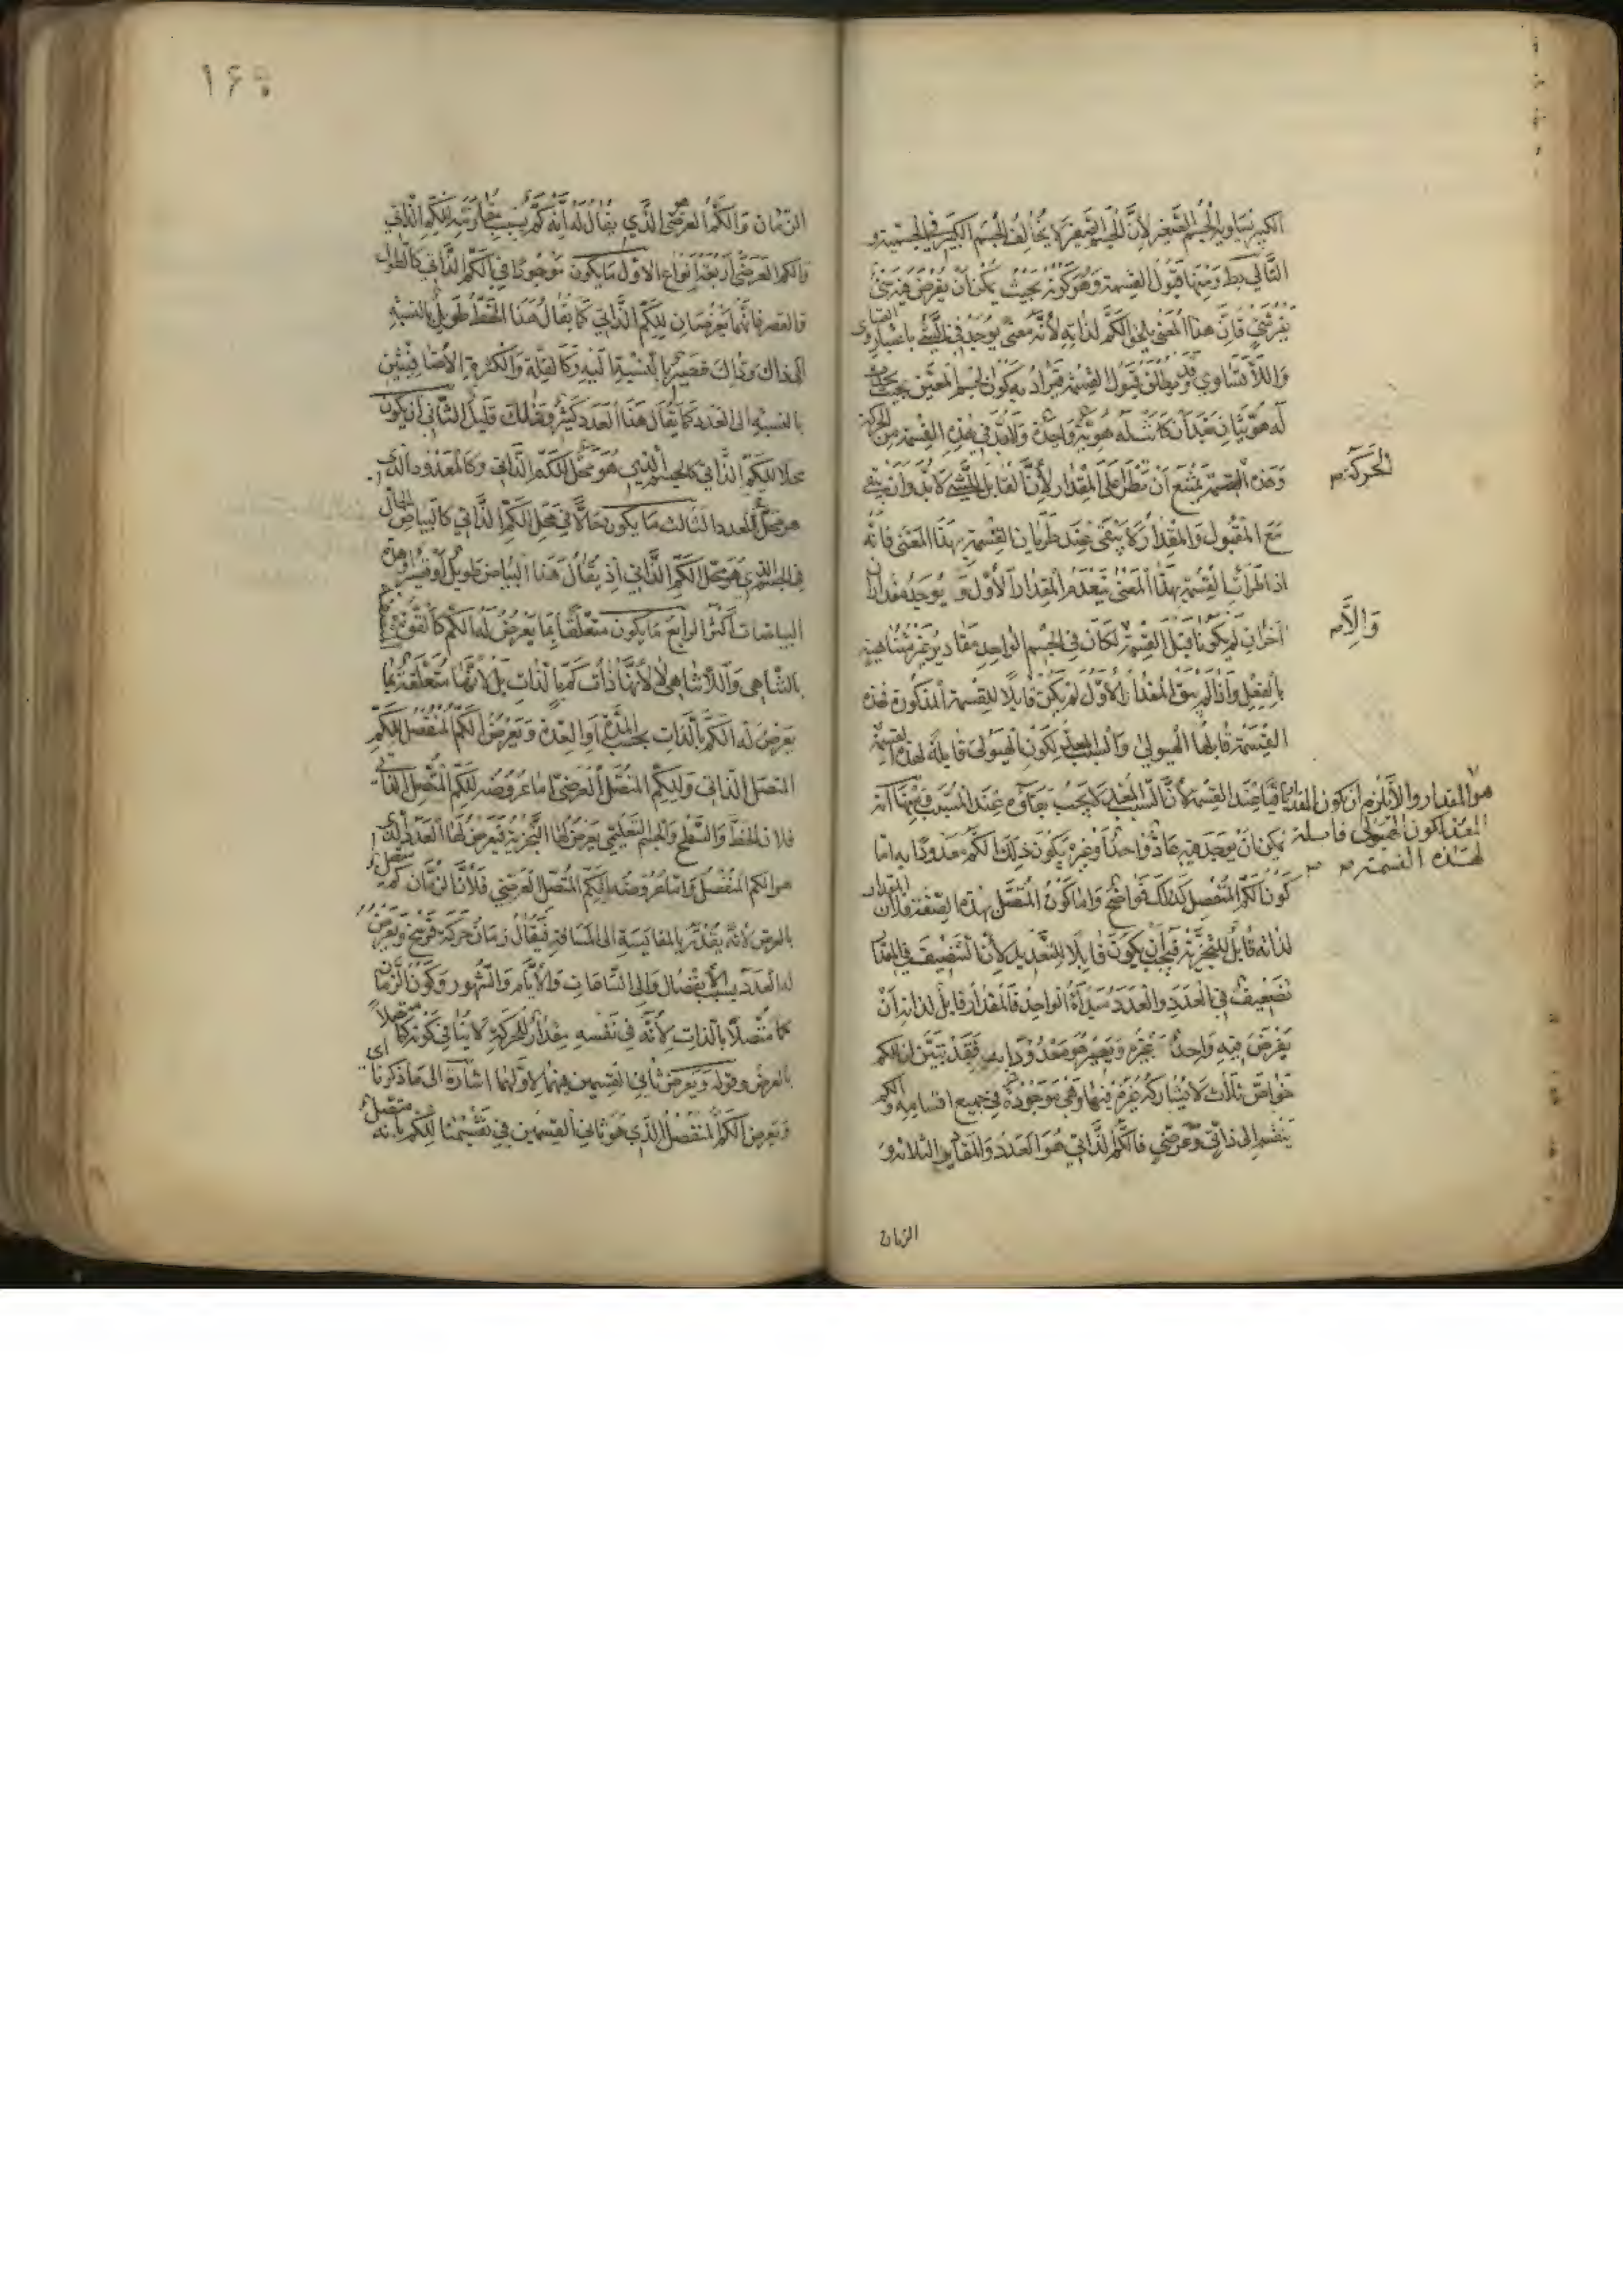 الكبير يساويه الجسم الصغير لأن الجسم الصغير لا يخالف الجسم الكبير في الجسمية و
التالي بط ومنها قبول القسمة وهو كونه بحيث يمكن ان يفرض فيه شئ
غير شئ فان هذا المعنى يلحق الكم لذاته لأنه معنى يوجد في الشئ باعتبار التساوى
واللاتساوي وقد يطلق قبول القسمة ويراد به كون الجسم المعين بحيث يحدث
له هويتان بعد ان كانت له هوية واحدة ولابد في هذه القسمة من الحركة
وهذه القسمة يمتنع ان تطرأ على المقدار لأن القابل للشئ لابد وان يبقى
الحركة صـ
مع المقبول والمقدار لا يبقى عند طريان القسمة بهذا المعنى فانه
اذا طرأت القسمة بهذا المعنى ينعدم المقدار الأول و يوجد مقداران
آخران لم يكونا قبل القسمة لكان في الجسم الواحد مقادير غير متناهية
والا صـ
بالفعل واذا لم يبق المقدار الأول لم يكن قابلا للقسمة المذكورة فهذه
القسمة قابلها الهيولى والسبب المعد لكون الهيولى قابلة لهذه القسمة
هو المقدار والا يلزم ان يكون المقدار باقيا عند القسمة لأن السبب المعد لا يجب بقاؤه عند المسبب ومنها انه
المعد لكون الهيولى قابلة
لهذه القسمة صـ صـ
يمكن ان يوجد فيه عاد واحدا وغيره يكون ذلك الكم معدودا به اما
كون الكم المنفصل كذلك فواضح واما كون المتصل بهذه الصفة فلان المقدار
لذاته قابل للتجزئة فيجب ان يكون قابلا للتعديد لأن التنصيف في المقدار
تضعيف في العدد والعدد مبدأه الواحد فالمقدار قابل لذاته ان
يفرض فيه واحدا غيره ويصير هو معدودا به فقد تبين ان للكم
خواص ثلاث لا يشاركه غيره فيها وهي موجودة في جميع اقسامه والكم
ينقسم الى ذاتي وعرضي فالكم الذاتي هو العدد والمقادير الثلاثة و
الزمان
الزمان والكم العرضي الذي يقال له انه كم بسبب مقارنته للكم الذاتي
والكم العرضي اربعة انواع الاول ما يكون موجودا في الكم الذاتي كالطول
والقصر فانهما يعرضان للكم الذاتي كما يقال هذا الخط طويل بالنسبة
الى ذاك وذاك قصير بالنسبة اليه وكالقلة والكثرة الاضافيتين
بالنسبة الى العدد كما يقال هذا العدد كثير وذلك قليل الثاني ان يكون
محلا للكم الذاتي كالجسم الذي هو محل للكم الذاتي وكالمعدود الذي
هو محل للعدد الثالث ما يكون حالا في محل الكم الذاتي كالبياض الحال
في الجسم الذي هو محل الكم الذاتي اذ يقال هذا البياض طويل او قصير وهذه
البياضات اكثر الرابع ما يكون متعلقا بما يعرض له الكم كالقوة
بالتناهي واللاتناهي لا لأنها ذات كم بالذات بل لأنها متعلقة بما
يعرض له الكم بالذات بحسب المدة او العدة ويعرض الكم المنفصل للكم
المتصل الذاتي وللكم المتصل العرضي اما عروضه للكم المتصل الذاتي
فلان الخط والسطح والجسم التعليمي يعرض لها التجزية فيعرض لها العدد الذي
هو الكم المنفصل واما عروضه للكم المتصل العرضي فلأن الزمان كم متصل
بالعرض لأنه يقدر بالمقايسة الى المسافة فيقال زمان حركة فرسخ ويعرض
له العدد بسبب الانفصال والى الساعات والأيام والشهور وكون الزمان
كما متصلا بالذات لأنه في نفسه مقدار للحركة لا ينافي كونه كما متصلا
بالعرض وقوله ويعرض ثاني القسمين فيهما لاولهما اشارة الى ما ذكرنا اى
ويعرض الكم المنفصل الذي هو ثاني القسمين في تقسيمنا للكم بأنه متصل